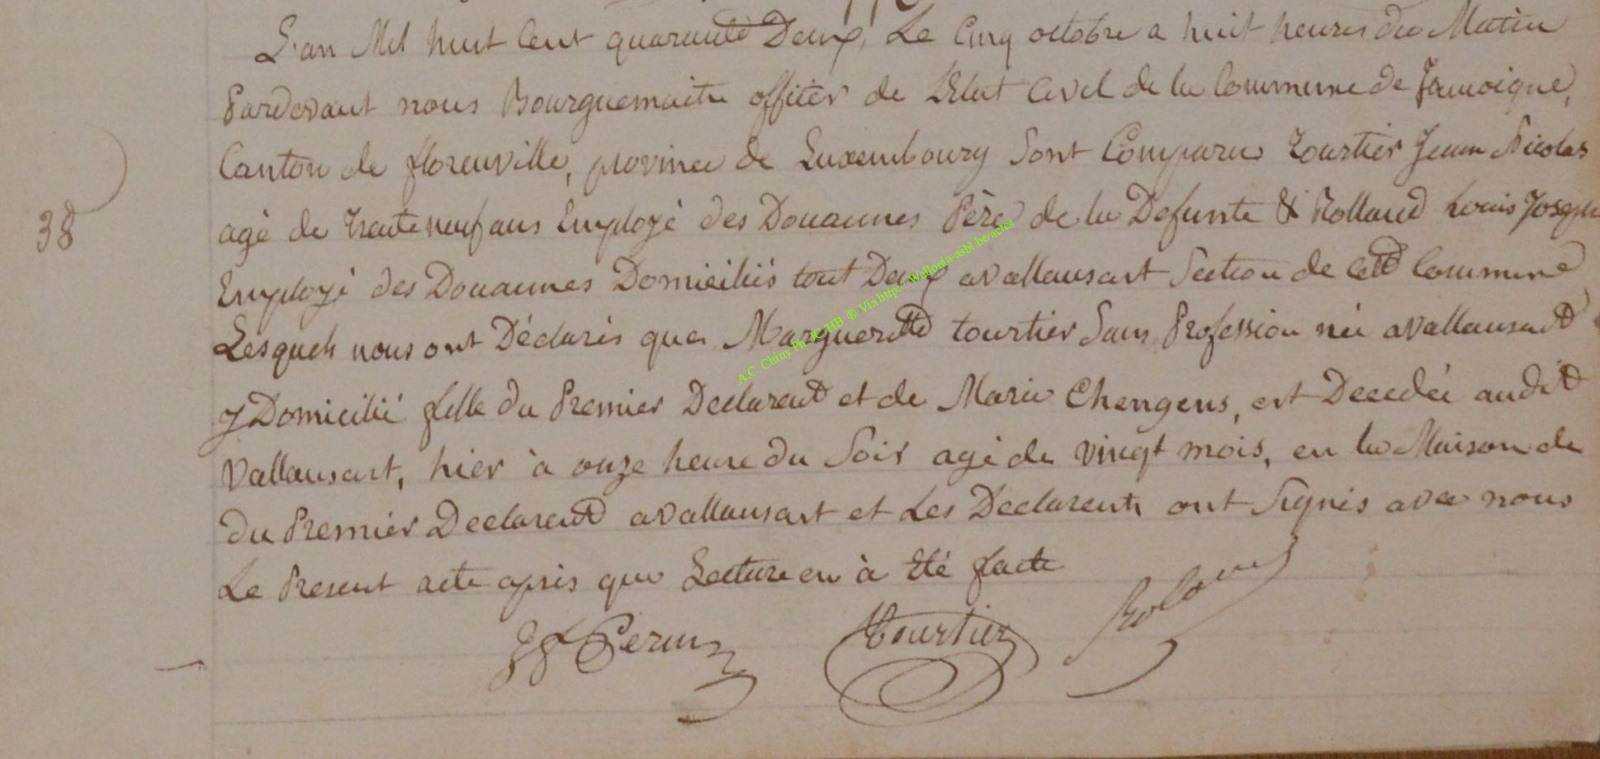 L'an Mil huit Cent quarante Deux, Le Cinq octobre a huit heures du Matin
Pardevant nous Bourguemaitre officier de L'Etat Civil de la Commune de Jamoigne,
Canton de florenville, province de Luxembourg Sont Comparu Tourtier Jean Nicolas
agé de Trente neuf ans Employé des Douannes Père de la Defunte & Rolland Louis Joseph
Employé des Douannes Domiciliés tout Deux avallansart Section de Cette Commune
Lesquels nous ont Déclarés que Margueritte tourtier Sans Profession née avallansart
38
y Domicilié fille du Premier Declarent et de Marie Chengens, est Decedée audit
Vallansart, hier à onze heure du Soir agé de vingt mois, en la Maison de
du Premier Declarent avallansart et Les Declarents ont Signés avec nous
Le Present acte après que Lecture en à Eté faite
Perin
Tourtier
Roland
A.C. Chiny